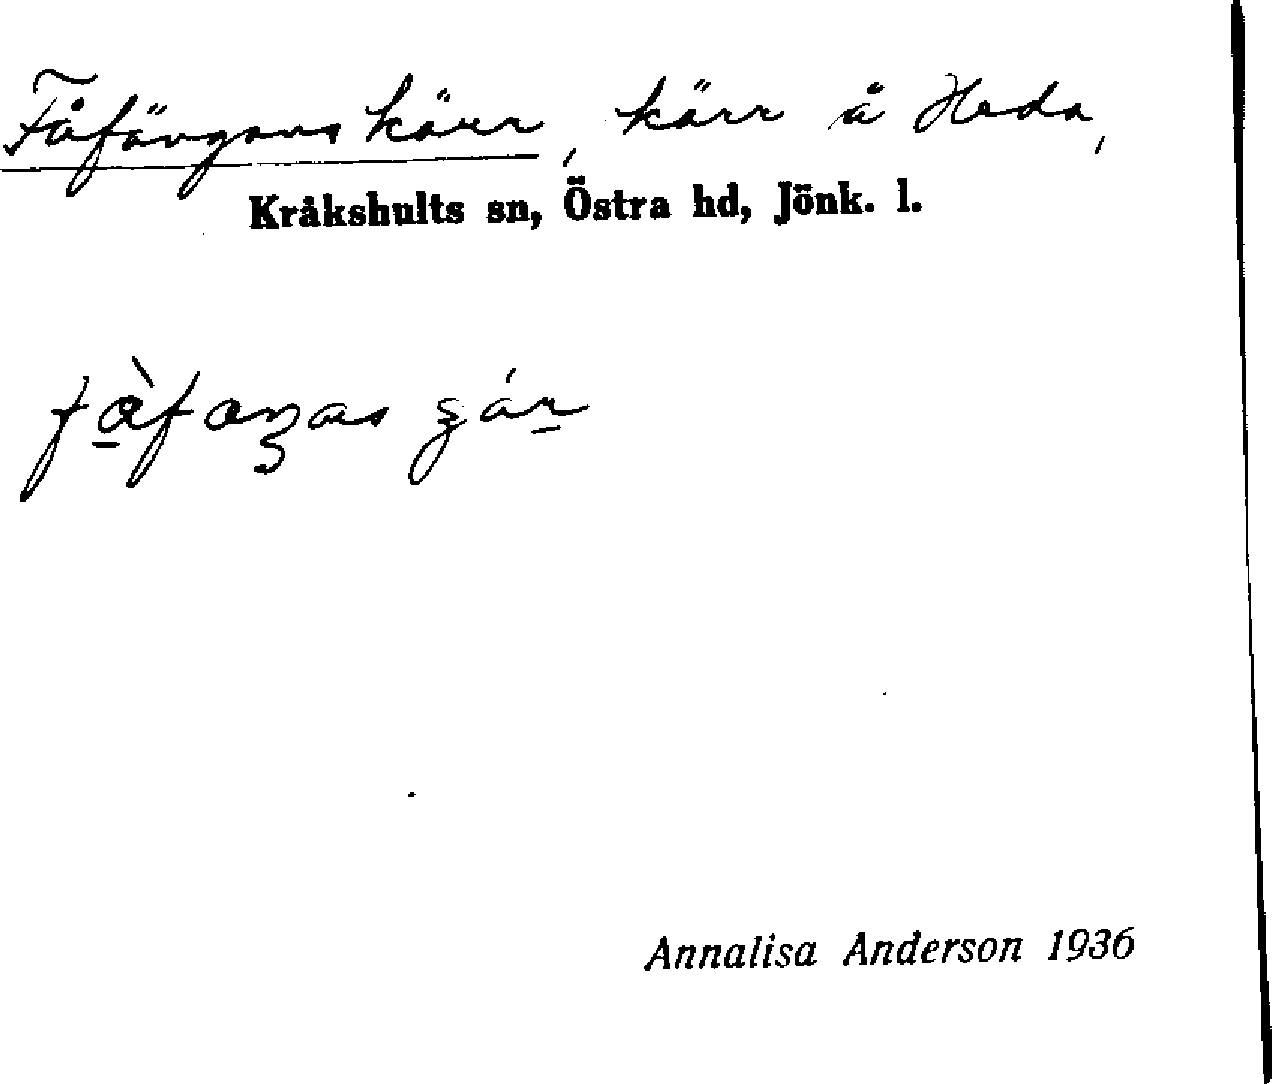 Fåfängans kärr, kärr å Heda,
Kråkshults sn, Östra hd, Jönk. l.
Annalisa Anderson 1936